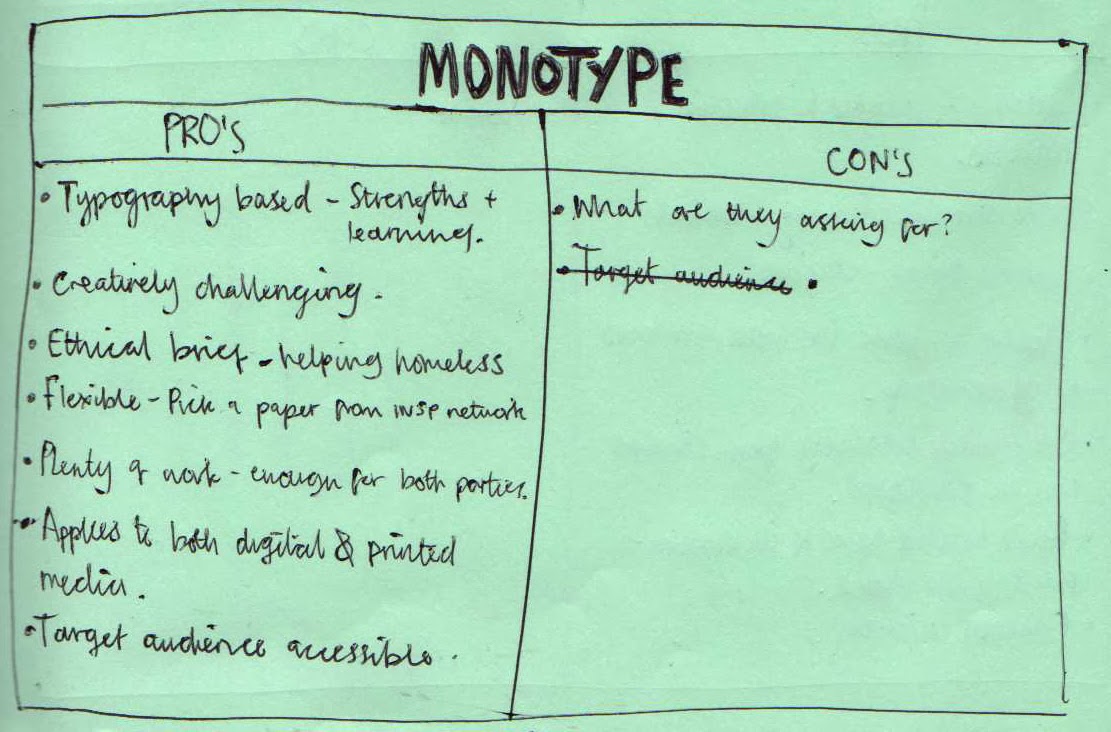 MONOTYPE
PRO'S
• Typography based - Strengths +
learning.
• Creatively challenging.
• Ethical brief - helping homeless
• Flexible - Pick a paper from INSP network
• Plenty of work - enough for both parties.
• Applies to both digital & printed
media.
• Target audience accessible.
CON'S
• What are they asking for?
• Target audience •